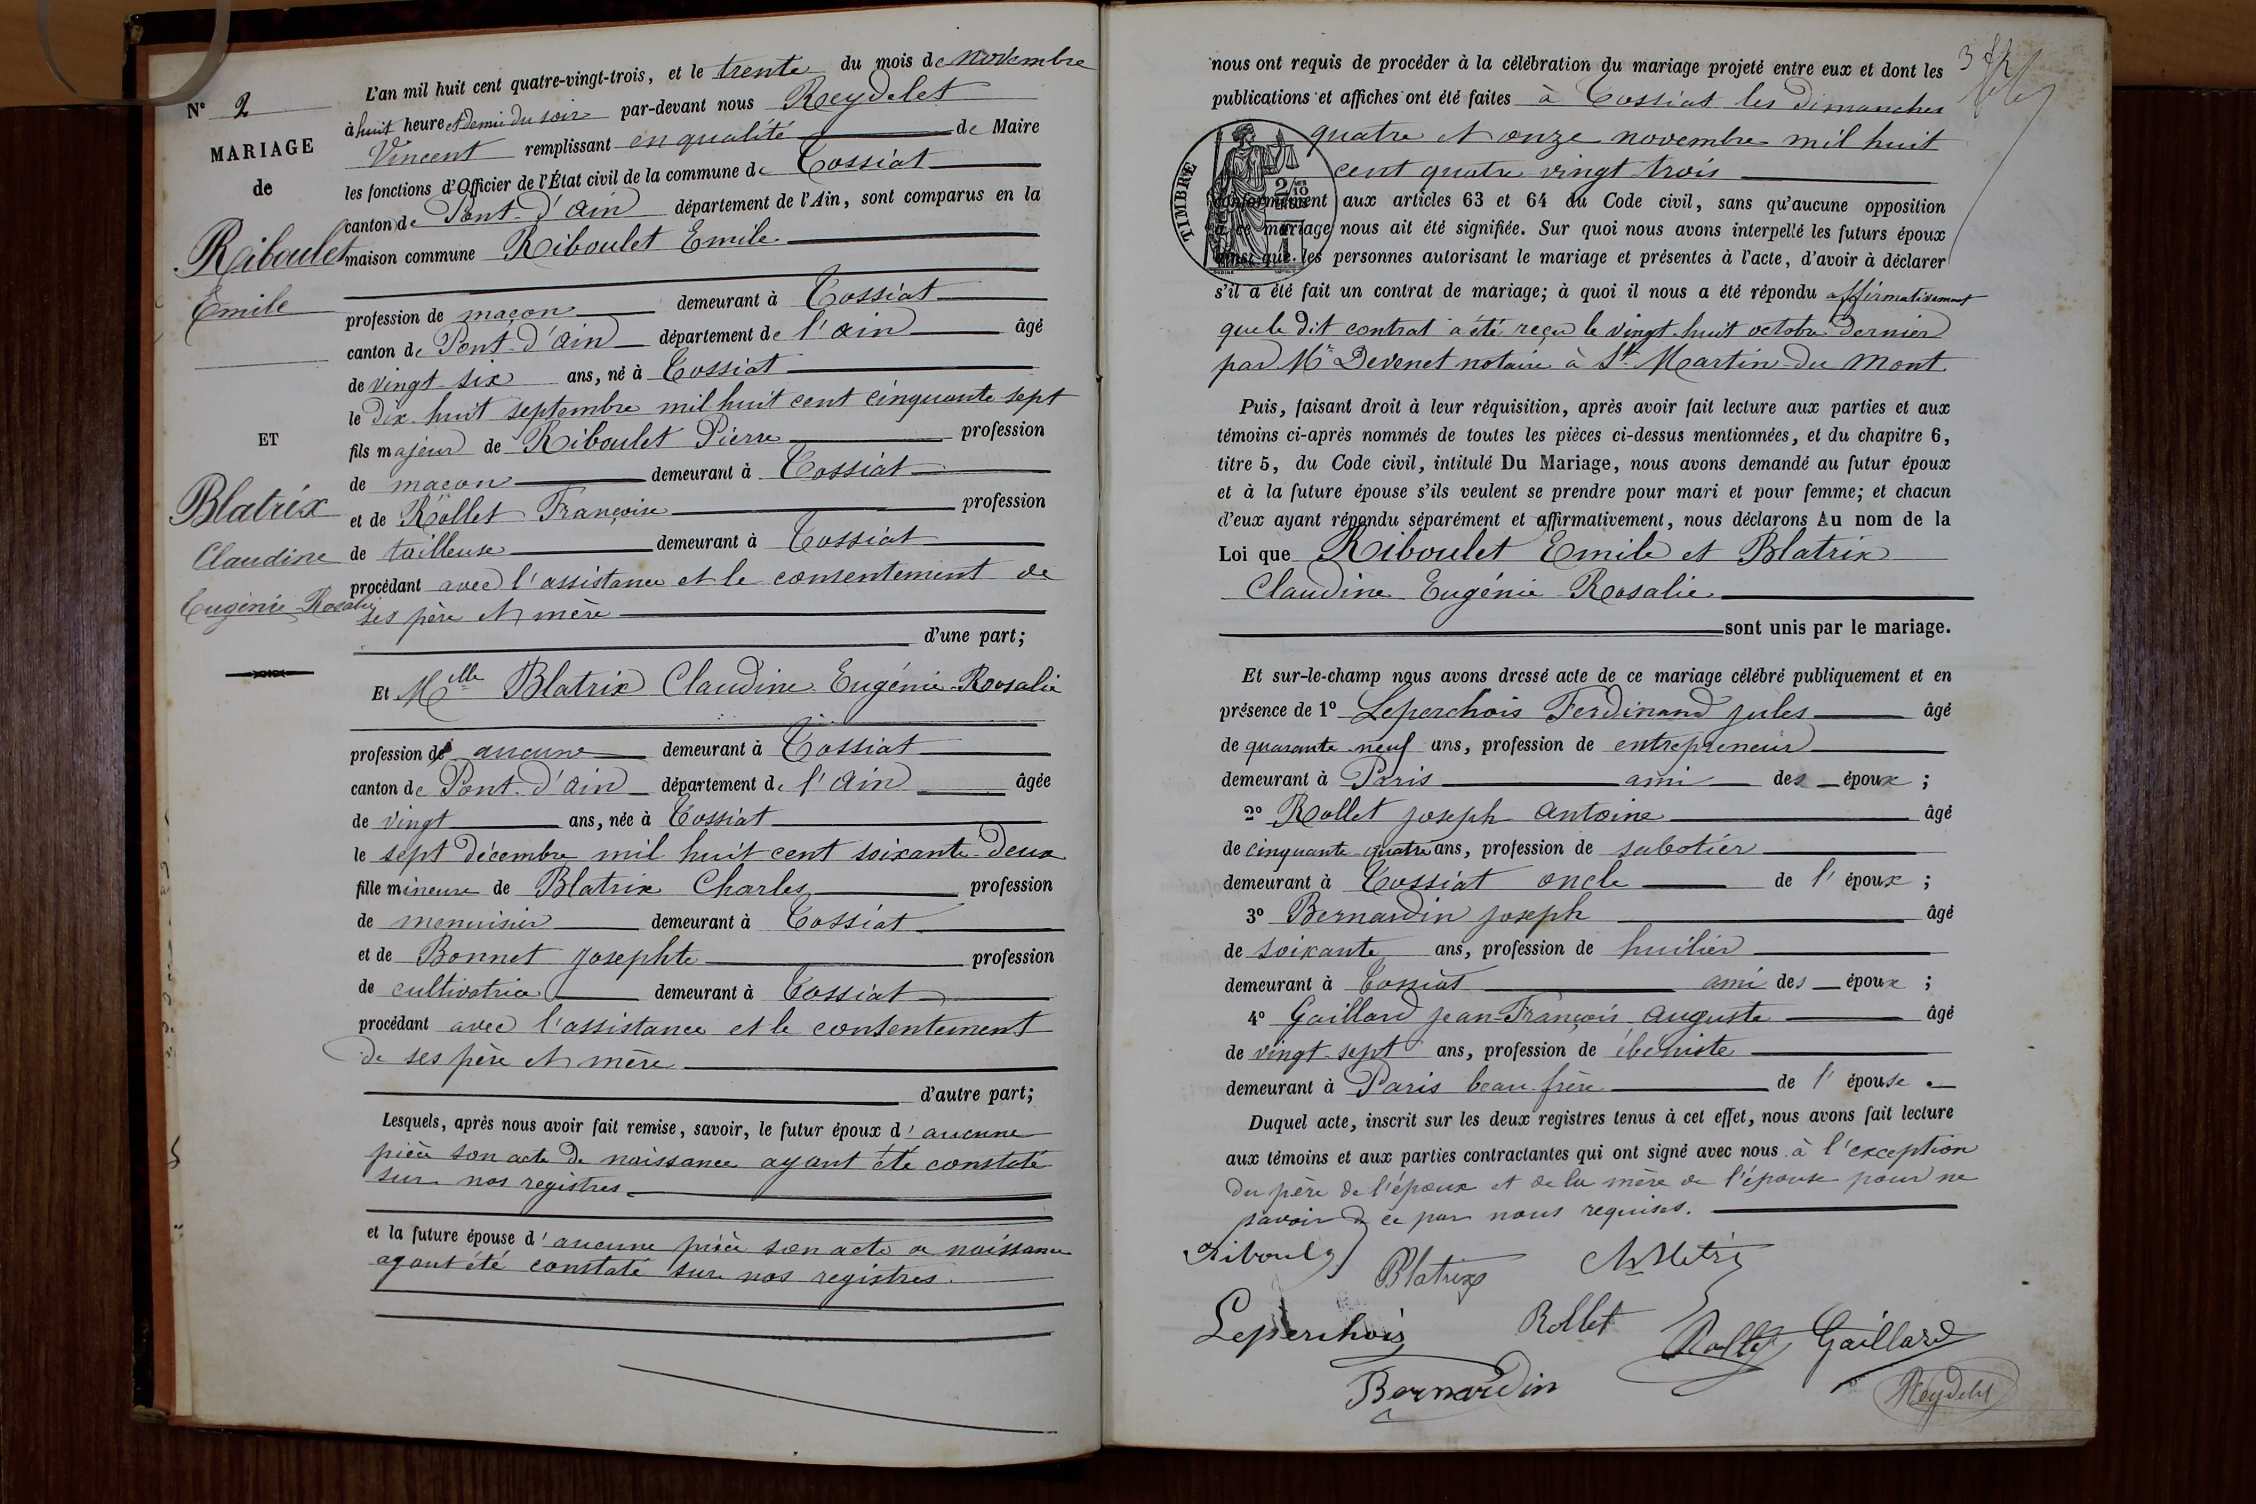 N° 2
MARIAGE
de
Riboulet
Emile
ET
Blatrix
Claudine
Eugénie Rosalie
L'an mil huit cent quatre-vingt-trois, et le trente du mois de novembre
à huit heure et demie du soir par-devant nous Reydelet
Vincent remplissant en qualité de Maire
les fonctions d'Officier de l'État civil de la commune de Tossiat
canton de Pont-d'Ain département de l'Ain, sont comparus en la
maison commune Riboulet Emile
profession de maçon demeurant à Tossiat
canton de Pont-d'Ain département de l'Ain âgé
de vingt-six ans, né à Tossiat
le dix-huit septembre mil huit cent cinquante sept
fils majeur de Riboulet Pierre profession
de maçon demeurant à Tossiat
et de Rollet Françoise profession
de tailleuse demeurant à Tossiat
procédant avec l'assistance et le consentement de
ses père et mère
d'une part;
Et Mlle Blatrix Claudine Eugénie Rosalie
profession de aucune demeurant à Tossiat
canton de Pont-d'Ain département de l'Ain âgée
de vingt ans, née à Tossiat
le sept décembre mil huit cent soixante-deux
fille mineure de Blatrix Charles profession
de menuisier demeurant à Tossiat
et de Bonnet Josephte profession
de cultivatrice demeurant à Tossiat
procédant avec l'assistance et le consentement
de ses père et mère
d'autre part;
Lesquels, après nous avoir fait remise, savoir, le futur époux d'aucune
pièce son acte de naissance ayant été constaté
sur nos registres
et la future épouse d'aucune pièce son acte de naissance
ayant été constaté sur nos registres.
nous ont requis de procéder à la célébration du mariage projeté entre eux et dont les
publications et affiches ont été faites à Tossiat les dimanches
quatre et onze novembre mil huit
cent quatre vingt trois
TIMBRE
conformément aux articles 63 et 64 du Code civil, sans qu'aucune opposition
à ce mariage nous ait été signifiée. Sur quoi nous avons interpellé les futurs époux
ainsi que les personnes autorisant le mariage et présentes à l'acte, d'avoir à déclarer
s'il a été fait un contrat de mariage; à quoi il nous a été répondu affirmativement
que le dit contrat a été reçu le vingt-huit octobre dernier
par Mr Devenet notaire à St Martin-du Mont
Puis, faisant droit à leur réquisition, après avoir fait lecture aux parties et aux
témoins ci-après nommés de toutes les pièces ci-dessus mentionnées, et du chapitre 6,
titre 5, du Code civil, intitulé Du Mariage, nous avons demandé au futur époux
et à la future épouse s'ils veulent se prendre pour mari et pour femme; et chacun
d'eux ayant répondu séparément et affirmativement, nous déclarons Au nom de la
Loi que Riboulet Emile et Blatrix
Claudine Eugénie Rosalie
sont unis par le mariage.
Et sur-le-champ nous avons dressé acte de ce mariage célébré publiquement et en
présence de 1° Leperchois Ferdinand Jules âgé
de quarante neuf ans, profession de entrepreneur
demeurant à Paris ami des époux ;
2° Rollet Joseph Antoine âgé
de cinquante-quatre ans, profession de sabotier
demeurant à Tossiat oncle de l'époux ;
3° Bernardin Joseph âgé
de soixante ans, profession de huilier
demeurant à Tossiat ami des époux ;
4° Gaillard Jean-François Auguste âgé
de vingt-sept ans, profession de ébéniste
demeurant à Paris beau-frère de l'épouse
Duquel acte, inscrit sur les deux registres tenus à cet effet, nous avons fait lecture
aux témoins et aux parties contractantes qui ont signé avec nous à l'exception
du père de l'époux et de la mère de l'épouse pour ne
savoir de ce par nous requises.
Riboulet Blatrix
Leperchois Rollet Rollet Gaillard
Bernardin Reydelet